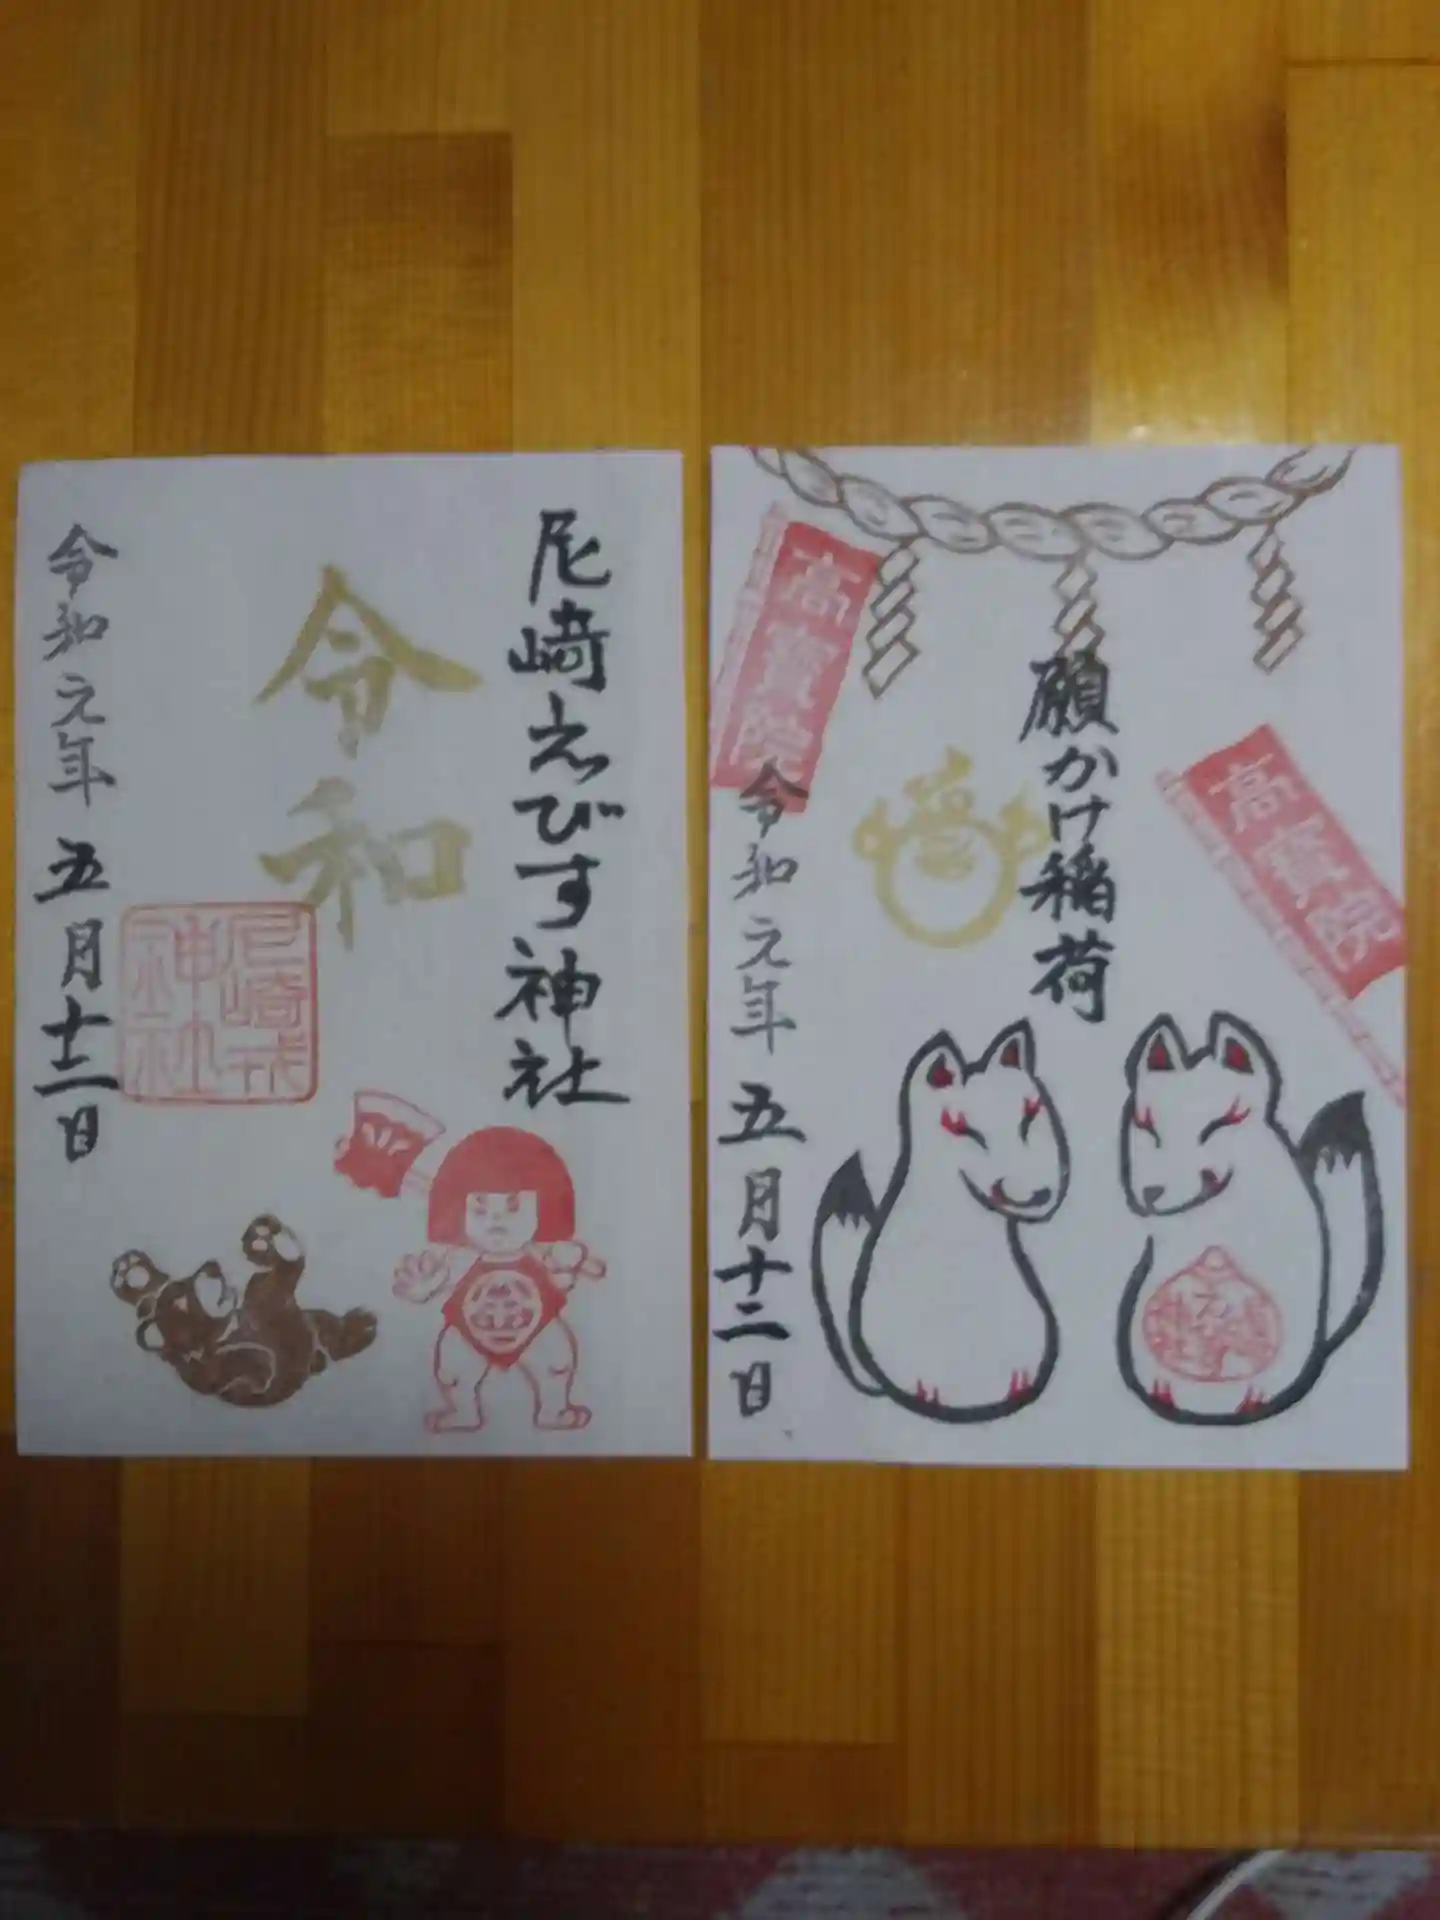 尼崎えびす神社
令和
令和元年五月十二日
尼崎戎
神社
金
願かけ稲荷
高寳院
高寳院
令和元年五月十二日